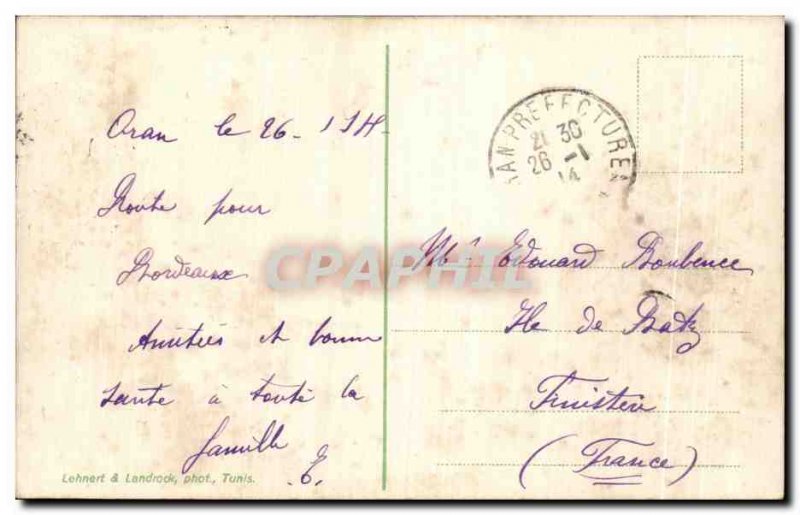 Oran le 26-1-14
Route pour
Bordeaux
Amitiés et bonne
santé à toute la
famille
E.
Lehnert & Landrock, phot., Tunis.
RAN PREFECTURE
21 30
26 -1
14
*
Mr Edouard
Ile de Batz
Finistère
(France)
CPAPHIL